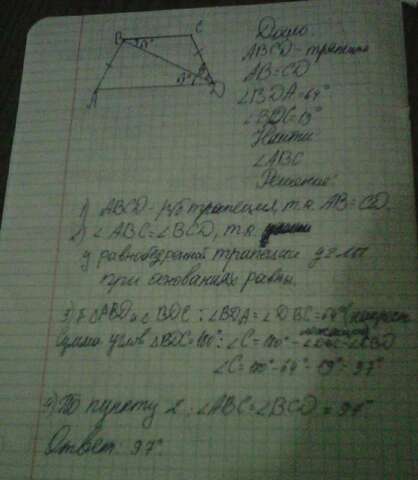 B C
A D
Дано:
ABCD - трапеция
AB = CD
∠BDA = 64°
∠BDC = 19°
Найти
∠ABC
Решение:
1) ABCD - р/б трапеция, т.к. AB = CD.
2) ∠ABC = ∠BCD, т.к.
у равнобедренной трапеции углы
при основаниях равны.
∠BDA = ∠DBC = 64°
Сумма углов △BDC = 180°: ∠C = 180° -
∠C = 180° - 64° - 19° = 97°
4) По пункту 2: ∠ABC = ∠BCD = 97°
Ответ: 97°.